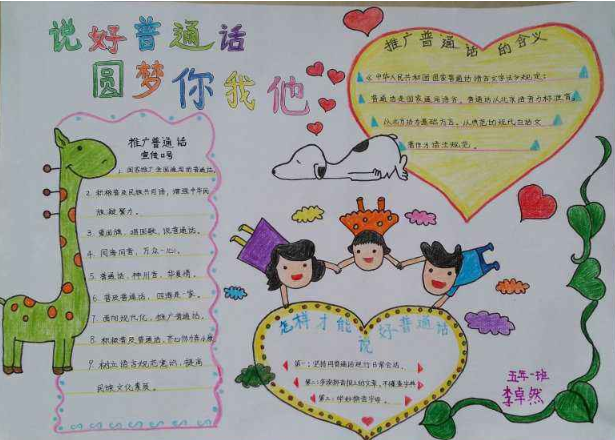 说好普通话
圆梦你我他
推广普通话
宣传口号
1. 国家推广全国通用的普通话。
2. 积极普及民族共同语，增强中华民
族凝聚力。
3. 爱国旗，唱国歌，说普通话。
4. 同声同音，万众一心。
5. 普通话，神州音，华夏情。
6. 普及普通话，四海是一家。
7. 面向现代化，推广普通话。
8. 积极普及普通话，齐心协力奔小康
9. 树立语言规范意识，提高
民族文化素质。
推广普通话的含义
《中华人民共和国国家普通话语言文字法》规定：
普通话是国家通用语言，普通话以北京语音为标准音，
以北方话为基础方言，以典范的现代白话文
著作为语法规范。
怎样才能
说好普通话
第一：坚持用普通话进行日常会话。
第二：多读拼音报上的文章，不懂查字典
第三：学好拼音字母。
五年一班
李卓然